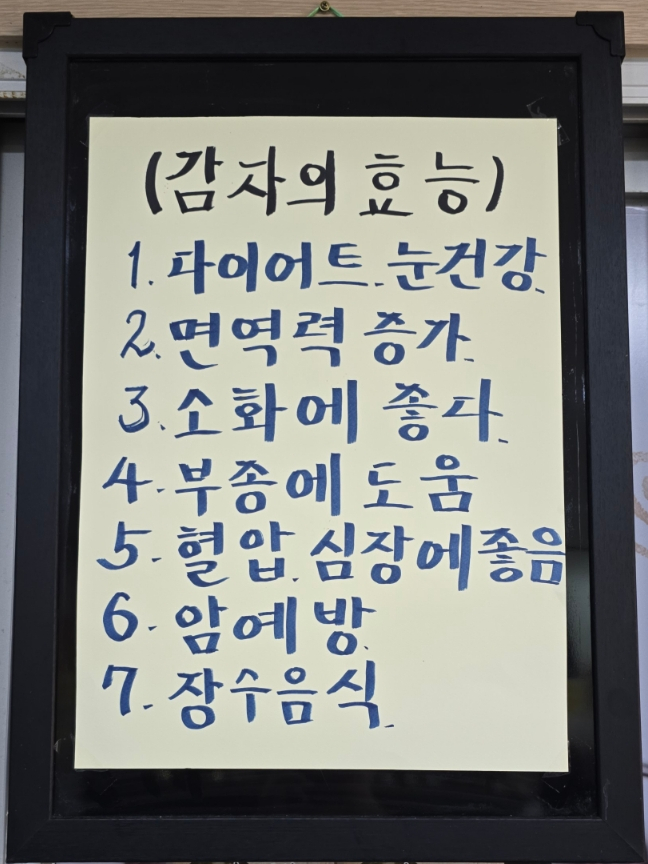 (감자의 효능)
1. 다이어트. 눈건강.
2. 면역력 증가.
3. 소화에 좋다.
4. 부종에 도움
5. 혈압. 심장에좋음
6. 암예방.
7. 장수음식.